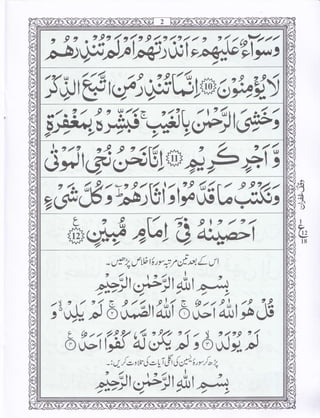 2
وَسَوَآءٌ عَلَيْهِمْ ءَاَنْذَرْتَهُمْ اَمْ لَمْ تُنْذِرْهُمْ
لَا يُؤْمِنُوْنَ ⑩ اِنَّمَا تُنْذِرُ مَنِ اتَّبَعَ الذِّكْرَ
وَخَشِىَ الرَّحْمٰنَ بِالْغَيْبِ ۚ فَبَشِّرْهُ بِمَغْفِرَةٍ
وَّاَجْرٍ كَرِيْمٍ ⑪ اِنَّا نَحْنُ نُحْىِ الْمَوْتٰى
وَنَكْتُبُ مَا قَدَّمُوْا وَاٰثَارَهُمْ ؕ وَكُلَّ شَىْءٍ
اَحْصَيْنٰهُ فِىْٓ اِمَامٍ مُّبِيْنٍ ⑫
اس کے بعد تین مرتبہ سورۂ اخلاص پڑھیں۔
بِسْمِ اللّٰهِ الرَّحْمٰنِ الرَّحِيْمِ
قُلْ هُوَ اللّٰهُ اَحَدٌ ۚ اَللّٰهُ الصَّمَدُ ۚ لَمْ يَلِدْ ۙ وَ
لَمْ يُوْلَدْ ۙ وَ لَمْ يَكُنْ لَّهٗ كُفُوًا اَحَدٌ
پڑھ کر سورۂ یٰسین کی اگلی آیات کی تلاوت کریں:۔
بِسْمِ اللّٰهِ الرَّحْمٰنِ الرَّحِيْمِ